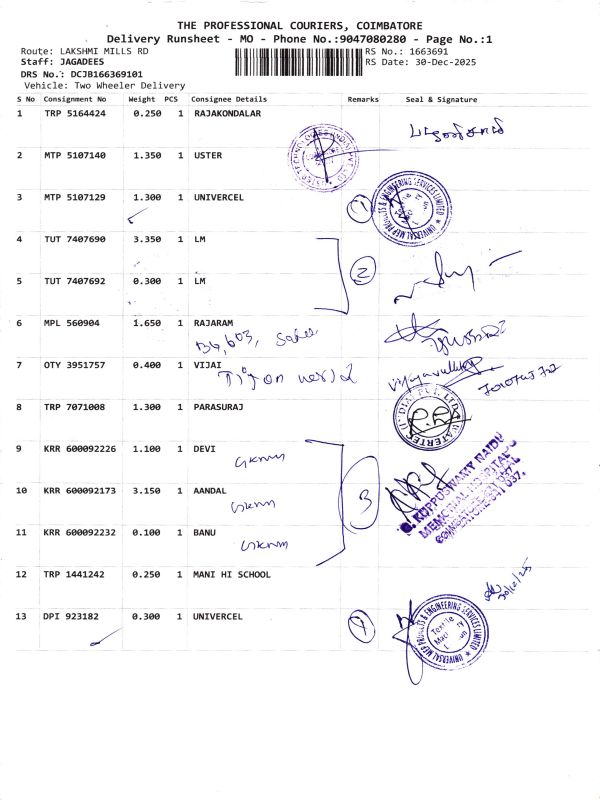 THE PROFESSIONAL COURIERS, COIMBATORE
Delivery Runsheet - MO - Phone No.:9047080280 - Page No.:1
Route: LAKSHMI MILLS RD
RS No.: 1663691
Staff: JAGADEES
RS Date: 30-Dec-2025
DRS No.: DCJB166369101
Vehicle: Two Wheeler Delivery
S No Consignment No Weight PCS Consignee Details Remarks Seal & Signature
1 TRP 5164424 0.250 1 RAJAKONDALAR
2 MTP 5107140 1.350 1 USTER
3 MTP 5107129 1.300 1 UNIVERCEL 1
UNIVERSAL MEP PROJECTS & ENGINEERING SERVICES LIMITED
4 TUT 7407690 3.350 1 LM
2
5 TUT 7407692 0.300 1 LM
6 MPL 560904 1.650 1 RAJARAM
7 OTY 3951757 0.400 1 VIJAI
8 TRP 7071008 1.300 1 PARASURAJ
9 KRR 600092226 1.100 1 DEVI
GKNM
10 KRR 600092173 3.150 1 AANDAL 3
GKNM
G. KUPPUSWAMY NAIDU
MEMORIAL HOSPITAL
COIMBATORE-641 037.
11 KRR 600092232 0.100 1 BANU
GKNM
12 TRP 1441242 0.250 1 MANI HI SCHOOL
30/12/25
13 DPI 923182 0.300 1 UNIVERCEL 1
UNIVERSAL MEP PROJECTS & ENGINEERING SERVICES LIMITED